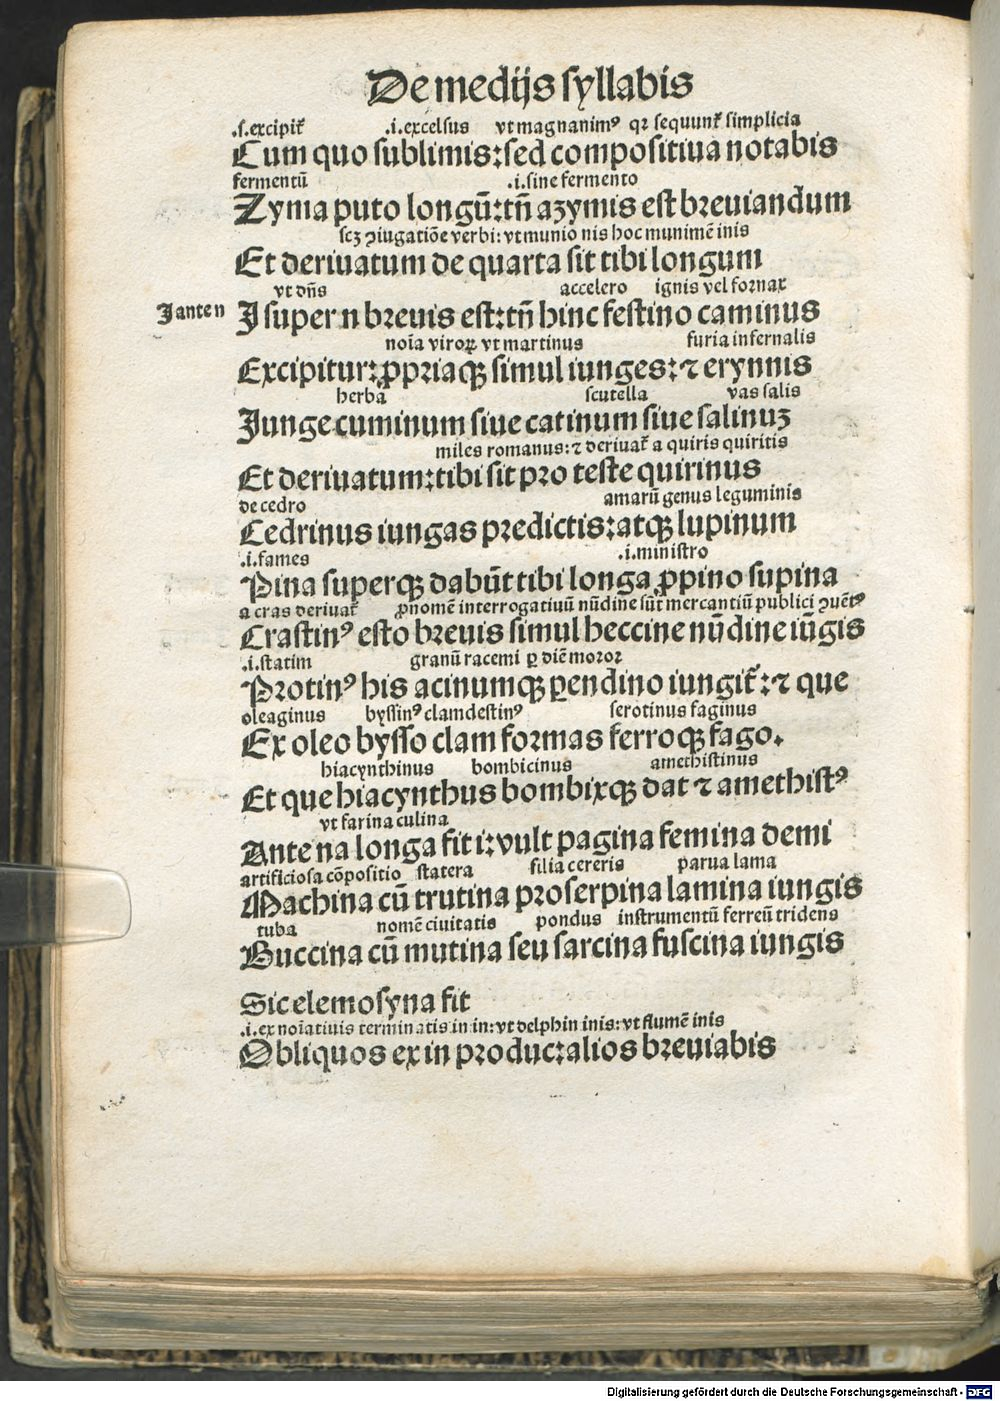 De medijs syllabis
.s.excipit᷑ .i.excelsus vt magnanimꝰ qꝛ sequunt᷑ simplicia
Cum quo sublimis: sed compositiua notabis
fermentū .i.sine fermento
Zyma puto longū: tñ azymis est bꝛeuiandum
scꝫ ꝯiugatiōe verbi: vt munio nis hoc munimē inis
Et deriuatum de quarta sit tibi longum
vt dñs accelero ignis vel foꝛnax
J ante n J super n bꝛeuis est: tñ hinc festino caminus
noīa viroꝝ vt martinus furia infernalis
Excipitur: ꝓpꝛiaqꝫ simul iunges: ⁊ erynnis
herba scutella vas salis
Junge cuminum siue catinum siue salinuꝫ
miles romanus: ⁊ deriuat᷑ a quiris quiritis
Et deriuatum: tibi sit pꝛo teste quirinus
de cedro amarū genus leguminis
Cedrinus iungas pꝛedictis: atqꝫ lupinum
.i.fames .i.ministro
Pina superqꝫ dabūt tibi longa ꝓpino supina
a cras deriuat᷑ ꝓnomē interrogatiuū nūdine sūt mercantiū publici ꝯuētꝰ
Crastinꝰ esto bꝛeuis simul heccine nūdine iūgis
.i.statim granū racemi ꝑ diē moꝛoꝛ
Pꝛotinꝰ his acinumqꝫ ꝑendino iungit᷑: ⁊ que
oleaginus byssinꝰ clamdestinꝰ serotinus faginus
Ex oleo bysso clam foꝛmas ferroqꝫ fago.
hiacynthinus bombicinus amethistinus
Et que hiacynthus bombixqꝫ dat ⁊ amethistꝰ
vt farina culina
Ante na longa fit i: vult pagina femina demi
artificiosa cōpositio statera filia cereris parua lama
Machina cū trutina pꝛoserpina lamina iungis
tuba nomē ciuitatis pondus instrumentū ferreū tridens
Buccina cū mutina seu sarcina fuscina iungis
Sic elemosyna fit
.i.ex noīatiuis terminatis in in: vt delphin inis: vt flumē inis
Obliquos ex in pꝛoduc: alios bꝛeuiabis
Digitalisierung gefördert durch die Deutsche Forschungsgemeinschaft - DFG